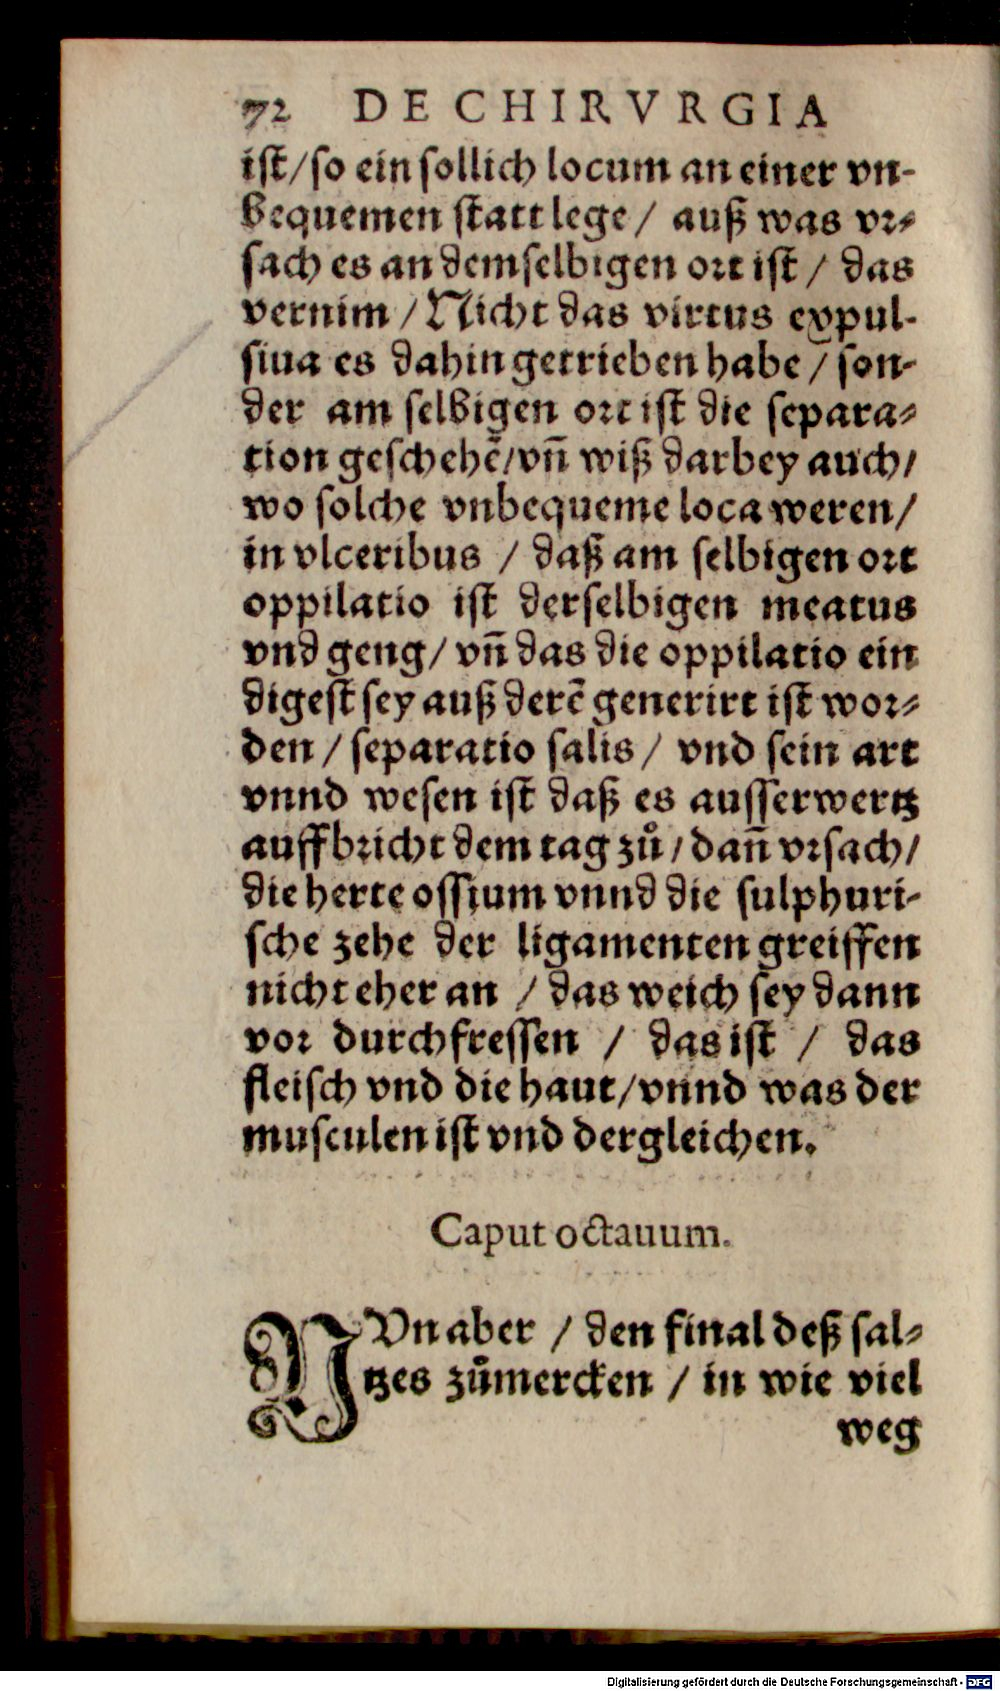 72 DE CHIRVRGIA
ist/ so ein sollich locum an einer vn-
bequemen statt lege / auß was vr-
sach es an demselbigen ort ist / das
vernim / Nicht das virtus expul-
siua es dahin getrieben habe / son-
der am selbigen ort ist die separa-
tion geschehẽ/ vñ wiß darbey auch/
wo solche vnbequeme loca weren/
in vlceribus / daß am selbigen ort
oppilatio ist derselbigen meatus
vnd geng/ vñ das die oppilatio ein
digest sey auß derẽ generirt ist wor-
den / separatio salis / vnd sein art
vnnd wesen ist daß es ausserwertz
auffbricht dem tag zů/ dañ vrsach/
die herte ossium vnnd die sulphuri-
sche zehe der ligamenten greiffen
nicht eher an / das weich sey dann
vor durchfressen / das ist / das
fleisch vnd die haut/ vnnd was der
musculen ist vnd dergleichen.
Caput octauum.
NVn aber / den final deß sal-
tzes zůmercken / in wie viel
weg
Digitalisierung gefördert durch die Deutsche Forschungsgemeinschaft - DFG